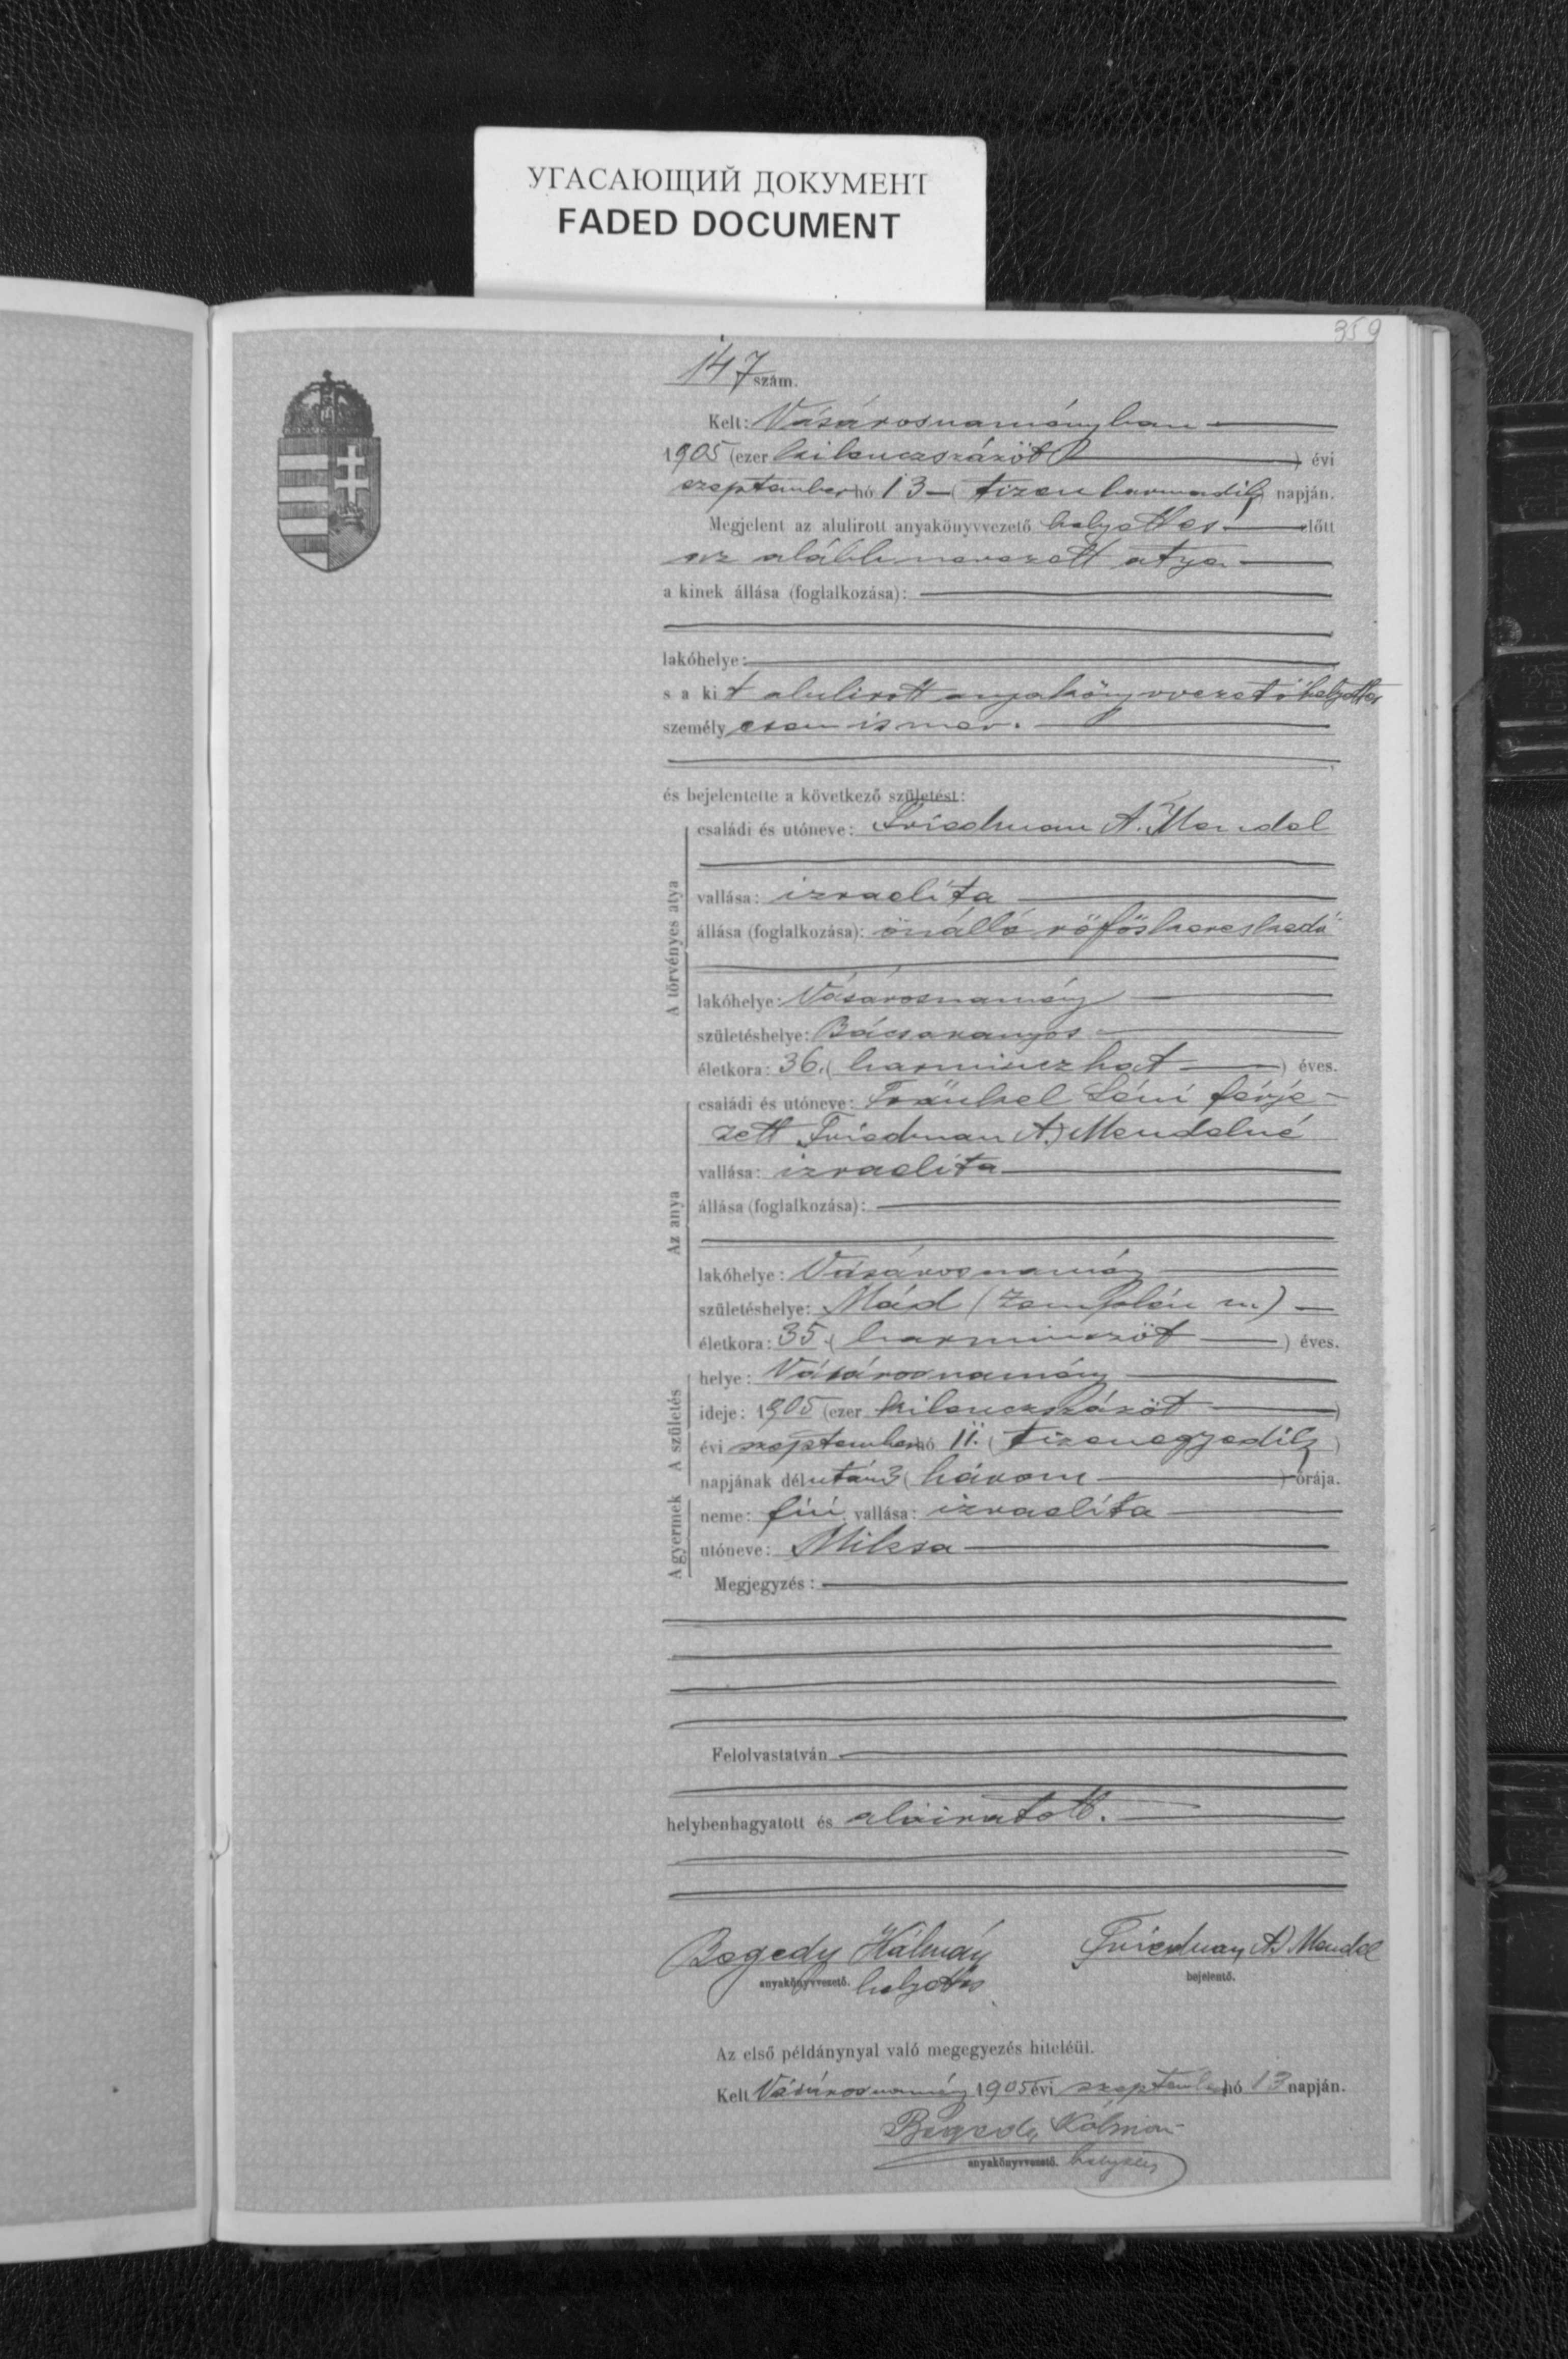 УГАСАЮЩИЙ ДОКУМЕНТ
FADED DOCUMENT
359
147 szám.
Kelt: Vásárosnaményban
1905 (ezer kilenczszázöt) évi
szeptember hó 13 (tizenharmadik) napján.
Megjelent az alulirott anyakönyvvezető helyettes előtt
az alább nevezett atya
a kinek állása (foglalkozása):
lakóhelye:
s a kit alulirott anyakönyvvezető helyettes
személyesen ismer.
és bejelentette a következő születést:
A törvényes atya
családi és utóneve: Friedman A. Mendel
vallása: izraelita
állása (foglalkozása): önálló rőfőskereskedő
lakóhelye: Vásárosnamény
születéshelye:
életkora: 36. (harminczhat) éves.
Az anya
családi és utóneve: Fränkel Léni férje-
zett Friedman A. Mendelné
vallása: izraelita
állása (foglalkozása):
lakóhelye: Vásárosnamény
születéshelye: Mád (Zemplén m)
életkora: 35. (harminczöt) éves.
A születés
helye: Vásárosnamény
ideje: 1905 (ezer kilenczszázöt)
évi szeptember hó 11. (tizenegyedik)
napjának délután 3 (három) órája.
A gyermek
neme: fiú, vallása: izraelita
utóneve: Miksa
Megjegyzés:
Felolvastatván
helybenhagyatott és aláiratott.
Bégedy Kálmán Friedman A. Mendel
anyakönyvvezető. helyettes bejelentő.
Az első példánynyal való megegyezés hiteléül.
Kelt Vásárosnamény 1905 évi szeptember hó 13 napján.
Bégedy Kálmán
anyakönyvvezető. helyettes